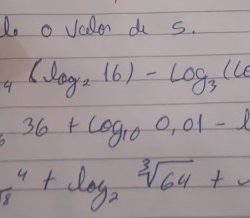 o valor de S.
4 (log₂ 16) - Log₃ (Lo
36 + Log₁₀ 0,01 - l
√8 4 + log₂ ∛64 +